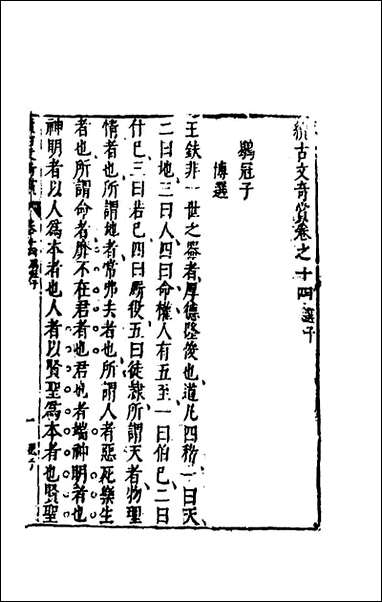 續古文奇賞卷之十四 選子
鶡冠子
博選
王鈇非一世之器者厚德隆俊也道凡四稽一曰天
二曰地三曰人四曰命權人有五至一曰伯己二曰
什己三曰若己四曰厮役五曰徒隸所謂天者物理
情者也所謂地者常弗夫者也所謂人者惡死樂生
者也所謂命者靡不在君者也君也者端神明者也
神明者以人爲本者也人者以賢聖爲本者也賢聖